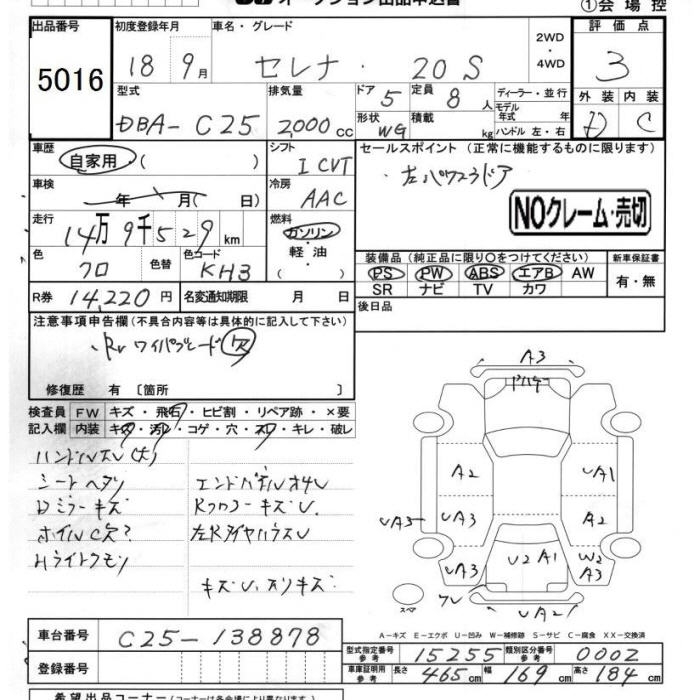 ①会場控
出品番号
5016
初度登録年月
18 9月
車名・グレード
セレナ・20S
2WD
・
4WD
評価点
3
型式
DBA-C25
排気量
2,000cc
ドア
5
定員
8人
形状
WG
積載
kg
ディーラー・並行
モデル
年式 年
ハンドル 左・右
外装 内装
D C
車歴
自家用 ( )
シフト
I CVT
セールスポイント (正常に機能するものに限ります)
左パワースドア
車検
年 月(日)
冷房
AAC
NOクレーム・売切
走行
14万9千529km
燃料
ガソリン
・
軽油
色
クロ
色替
色コード
KH3
装備品 (純正品に限り○をつけてください)
新車保証書
PS PW ABS エアB AW
SR ナビ TV カワ
有・無
R券 14,220円
名変通知期限 月 日
後日品
注意事項申告欄(不具合内容等は具体的に記入して下さい)
Rrワイパブレード欠
修復歴 有〔箇所 〕
検査員
記入欄
FW キズ・飛石・ヒビ割・リペア跡・×要
内装 キズ・汚レ・コゲ・穴・スレ・キレ・破レ
ハンドルスレ(大)
シートヘタリ
Dミラーキズ
ホイルC欠?
Hライトクモリ
キズU、スリキズ
A3
A2
UA1
UA3
UA3
A2
U2 A1
UA3
W2
A3
UA2
スペア
A-キズ E-エクボ U-凹み W-補修跡 S-サビ C-腐食 XX-交換済
車台番号
C25-138878
登録番号
型式指定番号
参考
15255
類別区分番号
参考
0002
車庫証明用
参考
長さ 465cm 幅 169cm 高さ 184cm